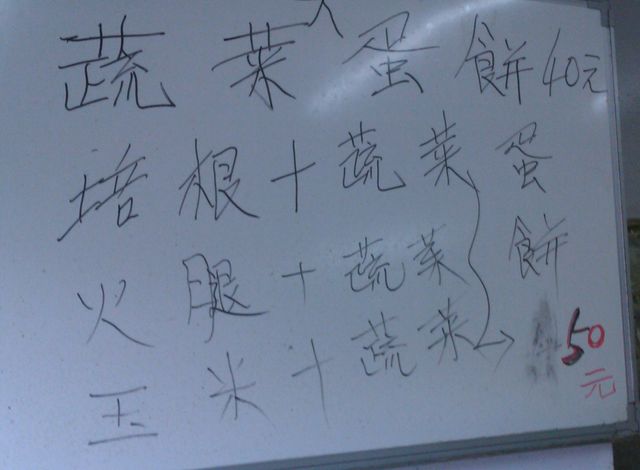 蔬菜蛋餅40元
培根+蔬菜蛋
火腿+蔬菜餅
玉米+蔬菜 50
元